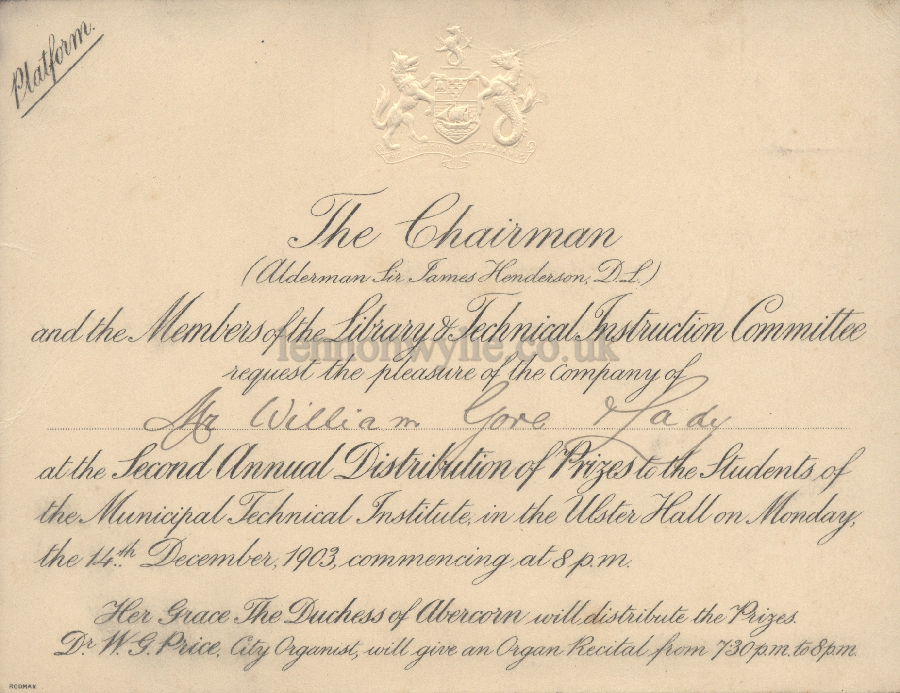 Platform.
The Chairman
(Alderman Sir James Henderson, D.L.)
and the Members of the Library & Technical Instruction Committee
lennonwylie.co.uk
request the pleasure of the company of
Mr William Gore & Lady
at the Second Annual Distribution of Prizes to the Students of
the Municipal Technical Institute, in the Ulster Hall on Monday,
the 14th December, 1903, commencing at 8 p.m.
Her Grace The Duchess of Abercorn will distribute the Prizes.
Dr W. G. Price, City Organist, will give an Organ Recital from 7.30 p.m. to 8 p.m.